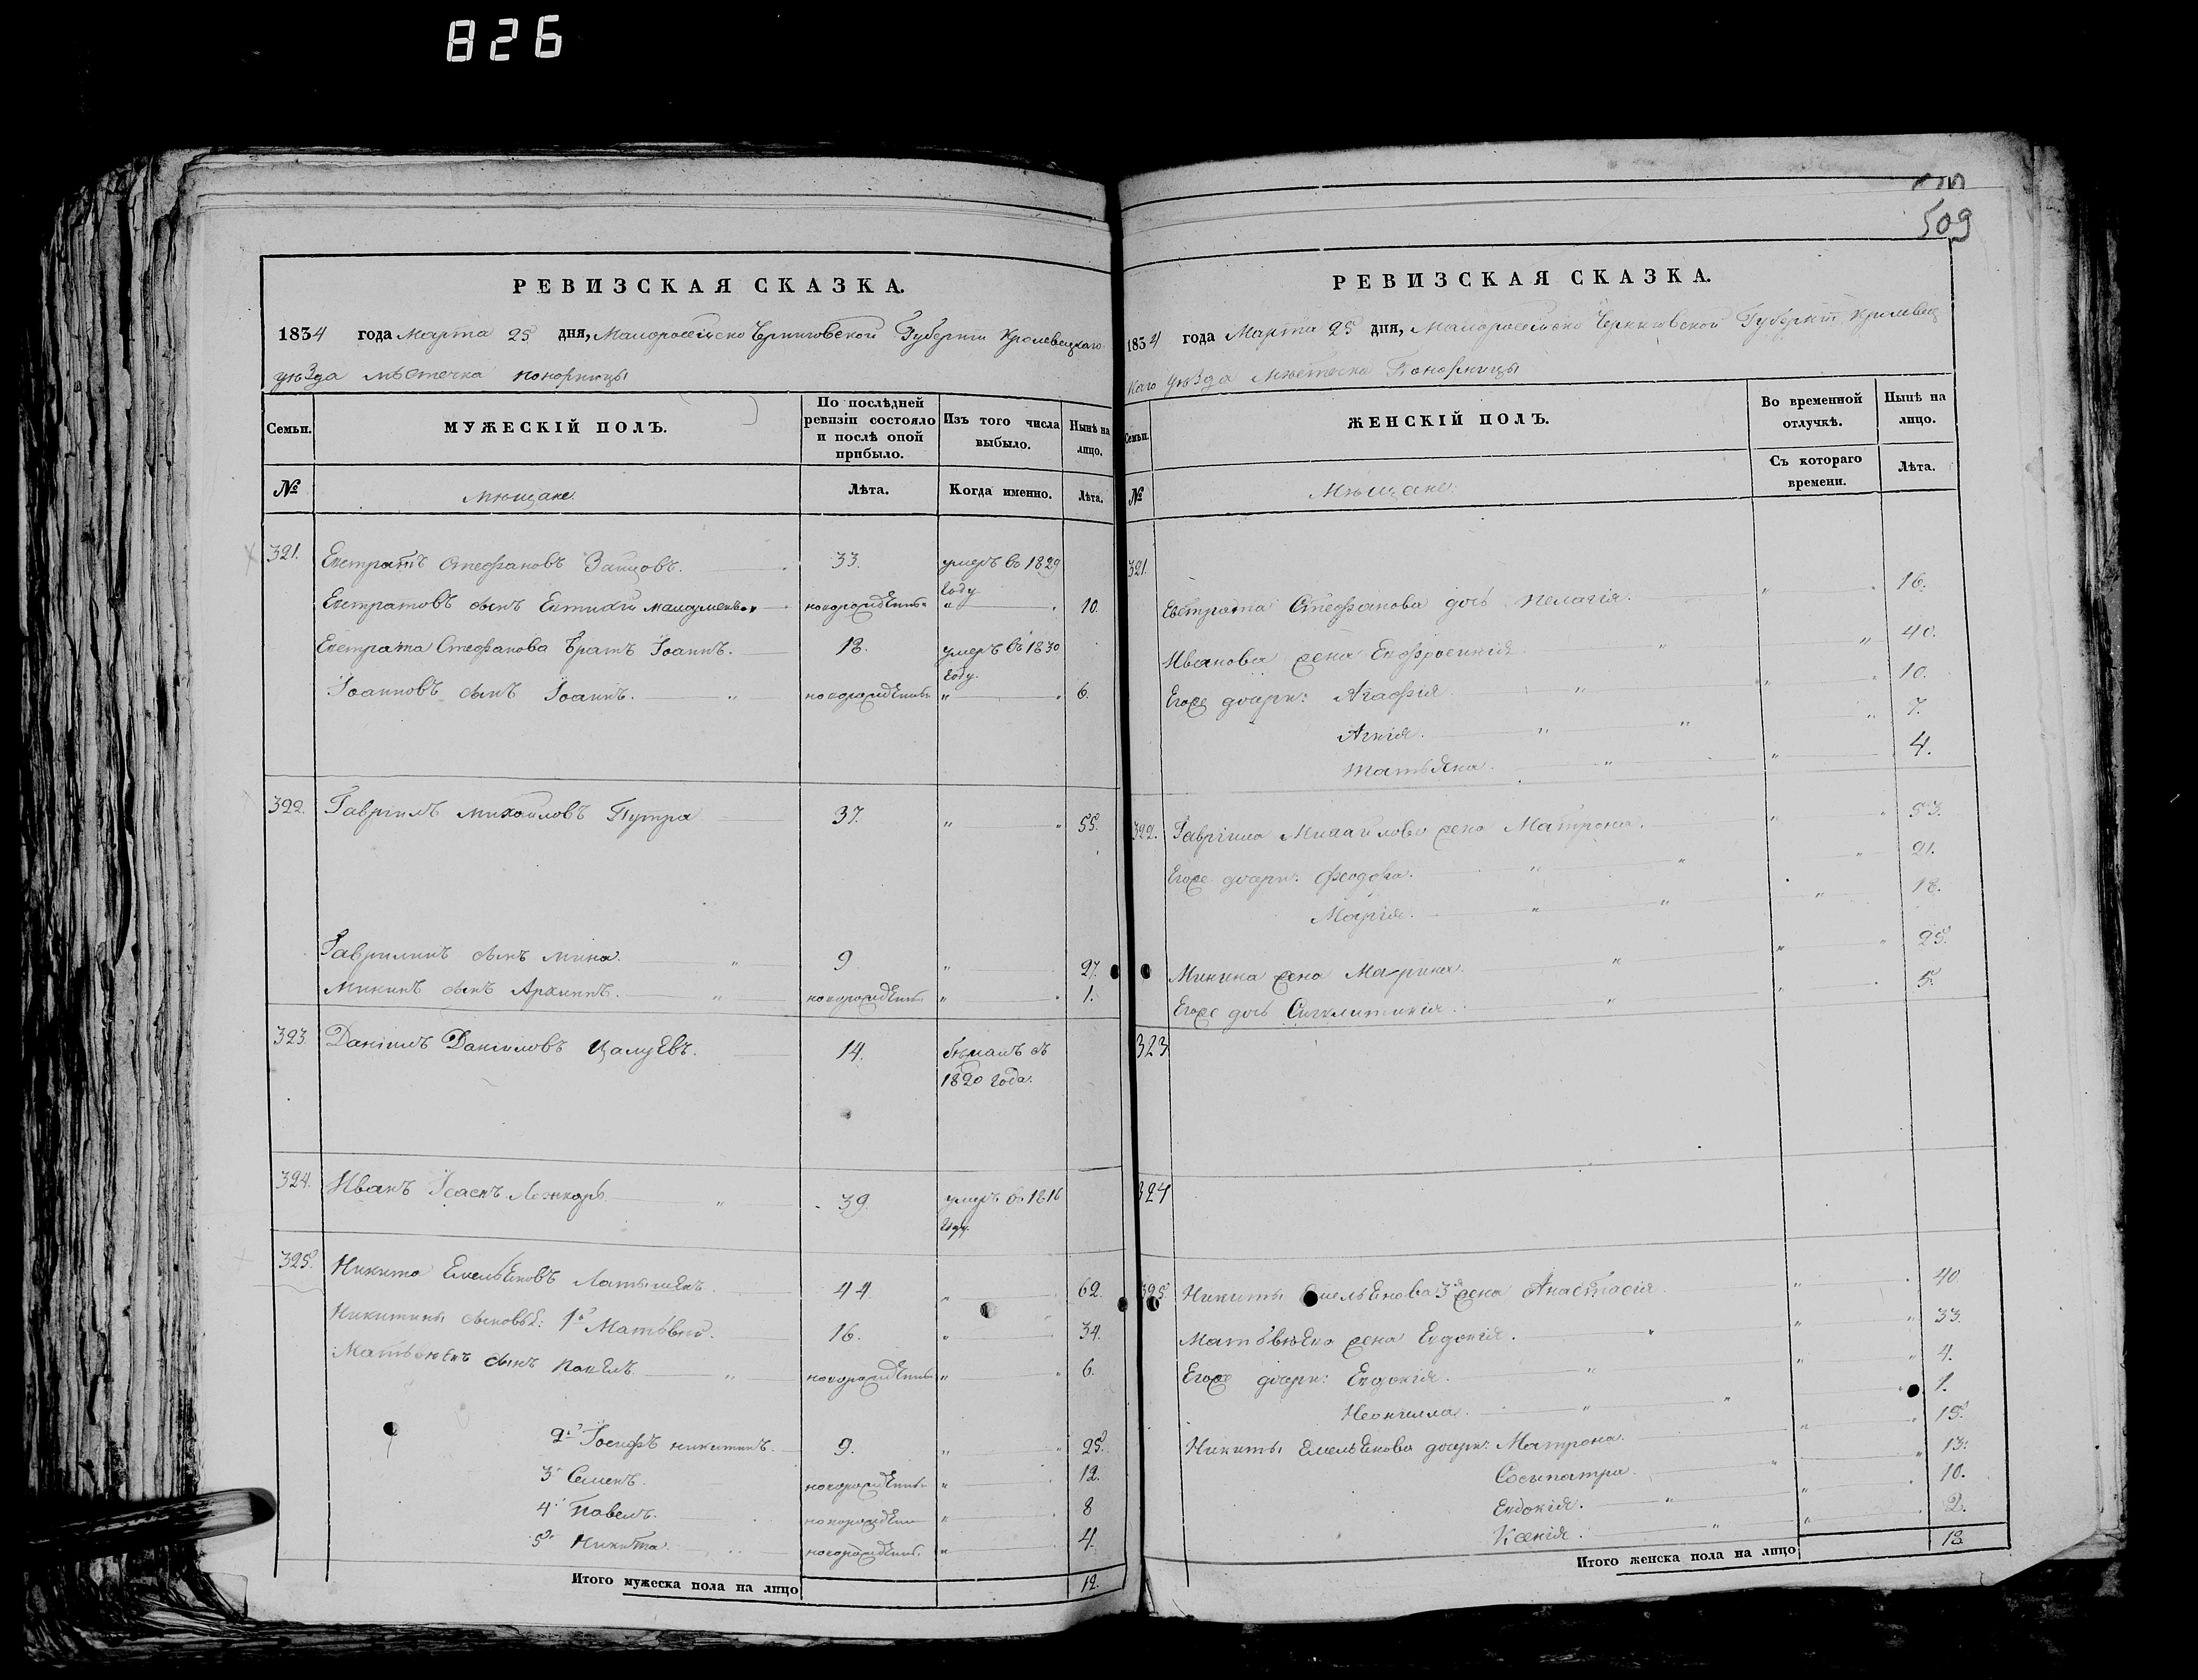 826
509
РЕВИЗСКАЯ СКАЗКА.
1834 года Марта 25 дня, Малоросійско Черниговской Губерніи Кролевецкаго
уѣзда мѣстечка Понорницы
Семьи.
МУЖЕСКІЙ ПОЛЪ.
По послѣдней ревизіи состояло и послѣ оной прибыло.
Изъ того числа выбыло.
Нынѣ на лицо.
№
Мѣщане.
Лѣта.
Когда именно.
Лѣта.
321. Евстратъ Стефановъ Зайцовъ. 33. умеръ въ 1829 году
Евстратовъ сынъ Евтихій новорожденъ " 10.
Евстрата Стефанова братъ Іоаннъ. 18. умеръ въ 1830 году.
Іоанновъ сынъ Іоаннъ. " новорожденъ " 6.
322. Гавріилъ Михайловъ Путра 37. " 55.
Гавриловъ сынъ Мина. " 9. " 27.
Мининъ сынъ Архипъ. " новорожденъ " 1.
323. Даніилъ Даніиловъ Цалуевъ. 14. бѣжалъ съ 1820 года.
324. Иванъ Исаевъ " 39. умеръ въ 1816 году.
325. Никита Емельяновъ 44. " 62.
Никитины сыновья: 1й Матвѣй. 16. " 34.
Матвѣевъ сынъ " новорожденъ " 6.
2й Іосифъ Никитинъ. 9. " 25.
3й Семенъ. новорожденъ " 12.
4й Павелъ. новорожден " 8
5й Никита. новорожден. " 4.
Итого мужеска пола на лицо 12.
РЕВИЗСКАЯ СКАЗКА.
1834 года Марта 25 дня, Малоросійско Черниговской Губерніи Кролевец
каго уѣзда мѣстечка Понорницы
Семьи.
ЖЕНСКІЙ ПОЛЪ.
Во временной отлучкѣ.
Нынѣ на лицо.
№
Мѣщане.
Съ котораго времени.
Лѣта.
321.
Евстрата Стефанова дочь Пелагія. " 16.
Иванова жена Евфросинія " 40.
Егоже дочери: Агафія " 10.
Агнія. " 7.
Татьяна. " 4.
322. Гавріила Михайлова жена Матрона. " 53.
Егоже дочери: Феодора. " 21.
Марія. " 18.
Минина жена Марина. " 25.
Егоже дочь Синклитикія. " 5.
323
324
325. Никиты Емельянова 3я жена Анастасія " 40
Матвѣева жена Евдокія. " 33.
Егоже дочери: Евдокія. " 4.
Неонилла. " 1.
Никиты Емельянова дочери: Матрона. " 15.
Сосипатра. " 13.
Евдокія. " 10.
Ксенія. " 2.
Итого женска пола на лицо 18